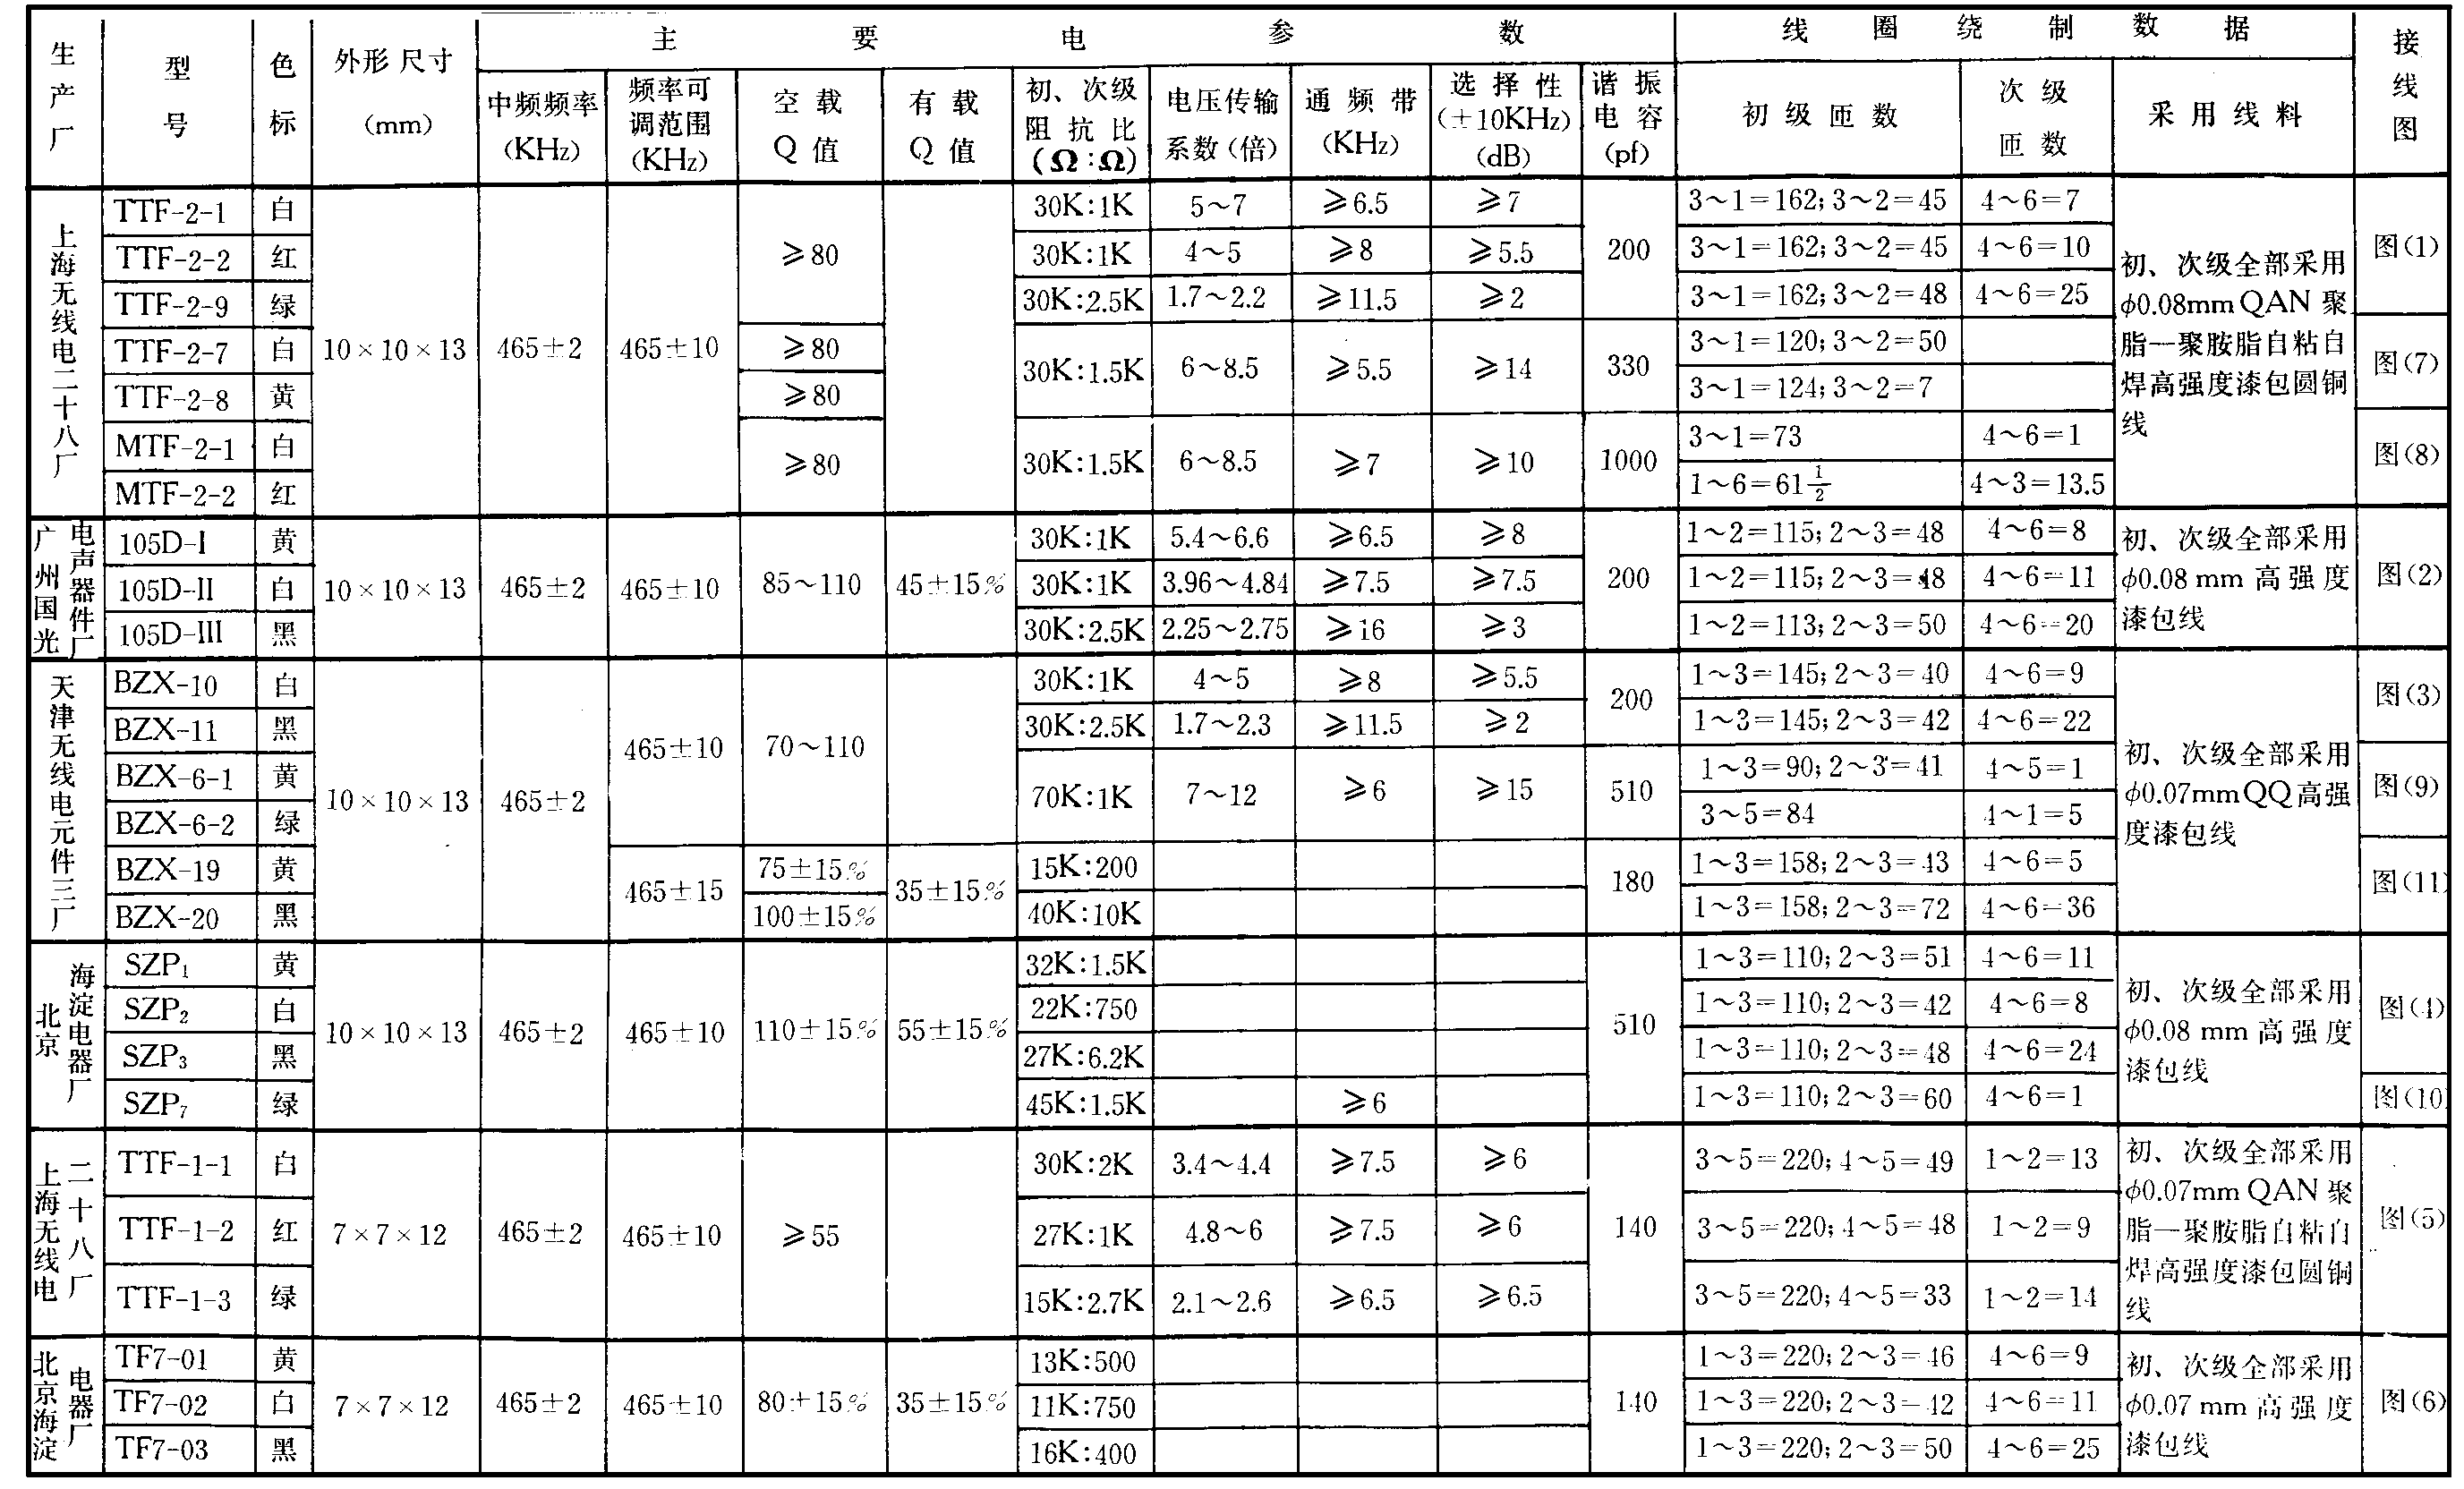 生产厂 型号 色标 外形尺寸(mm) 主要电参数 线圈绕制数据 接线图
中频频率(KHz) 频率可调范围(KHz) 空载Q值 有载Q值 初、次级阻抗比(Ω:Ω) 电压传输系数(倍) 通频带(KHz) 选择性(±10KHz)(dB) 谐振电容(pf) 初级匝数 次级匝数 采用线料
上海无线电二十八厂 10×10×13 465±2 465±10 初、次级全部采用φ0.08mm QAN聚脂—聚胺脂自粘自焊高强度漆包圆铜线
TTF-2-1 白 ≥80 30K:1K 5~7 ≥6.5 ≥7 200 3~1=162;3~2=45 4~6=7 图(1)
TTF-2-2 红 30K:1K 4~5 ≥8 ≥5.5 3~1=162;3~2=45 4~6=10
TTF-2-9 绿 30K:2.5K 1.7~2.2 ≥11.5 ≥2 3~1=162;3~2=48 4~6=25
TTF-2-7 白 ≥80 30K:1.5K 6~8.5 ≥5.5 ≥14 330 3~1=120;3~2=50 图(7)
TTF-2-8 黄 ≥80 3~1=124;3~2=7
MTF-2-1 白 ≥80 30K:1.5K 6~8.5 ≥7 ≥10 1000 3~1=73 4~6=1 图(8)
MTF-2-2 红 1~6=61½ 4~3=13.5
广州国光电声器件厂 10×10×13 465±2 465±10 85~110 45±15% 200 初、次级全部采用φ0.08mm高强度漆包线 图(2)
105D-I 黄 30K:1K 5.4~6.6 ≥6.5 ≥8 1~2=115;2~3=48 4~6=8
105D-II 白 30K:1K 3.96~4.84 ≥7.5 ≥7.5 1~2=115;2~3=48 4~6=11
105D-III 黑 30K:2.5K 2.25~2.75 ≥16 ≥3 1~2=113;2~3=50 4~6=20
天津无线电元件三厂 10×10×13 465±2 初、次级全部采用φ0.07mmQQ高强度漆包线
BZX-10 白 465±10 70~110 30K:1K 4~5 ≥8 ≥5.5 200 1~3=145;2~3=40 4~6=9 图(3)
BZX-11 黑 30K:2.5K 1.7~2.3 ≥11.5 ≥2 1~3=145;2~3=42 4~6=22
BZX-6-1 黄 70K:1K 7~12 ≥6 ≥15 510 1~3=90;2~3=41 4~5=1 图(9)
BZX-6-2 绿 3~5=84 4~1=5
BZX-19 黄 465±15 75±15% 35±15% 15K:200 180 1~3=158;2~3=43 4~6=5 图(11)
BZX-20 黑 100±15% 40K:10K 1~3=158;2~3=72 4~6=36
北京海淀电器厂 10×10×13 465±2 465±10 110±15% 55±15% 510 初、次级全部采用φ0.08mm高强度漆包线
SZP₁ 黄 32K:1.5K 1~3=110;2~3=51 4~6=11 图(4)
SZP₂ 白 22K:750 1~3=110;2~3=42 4~6=8
SZP₃ 黑 27K:6.2K 1~3=110;2~3=48 4~6=24
SZP₇ 绿 45K:1.5K ≥6 1~3=110;2~3=60 4~6=1 图(10)
上海无线电二十八厂 7×7×12 465±2 465±10 ≥55 140 初、次级全部采用φ0.07mm QAN聚脂—聚胺脂自粘自焊高强度漆包圆铜线 图(5)
TTF-1-1 白 30K:2K 3.4~4.4 ≥7.5 ≥6 3~5=220;4~5=49 1~2=13
TTF-1-2 红 27K:1K 4.8~6 ≥7.5 ≥6 3~5=220;4~5=48 1~2=9
TTF-1-3 绿 15K:2.7K 2.1~2.6 ≥6.5 ≥6.5 3~5=220;4~5=33 1~2=14
北京海淀电器厂 7×7×12 465±2 465±10 80±15% 35±15% 140 初、次级全部采用φ0.07mm高强度漆包线 图(6)
TF7-01 黄 13K:500 1~3=220;2~3=46 4~6=9
TF7-02 白 11K:750 1~3=220;2~3=42 4~6=11
TF7-03 黑 16K:400 1~3=220;2~3=50 4~6=25